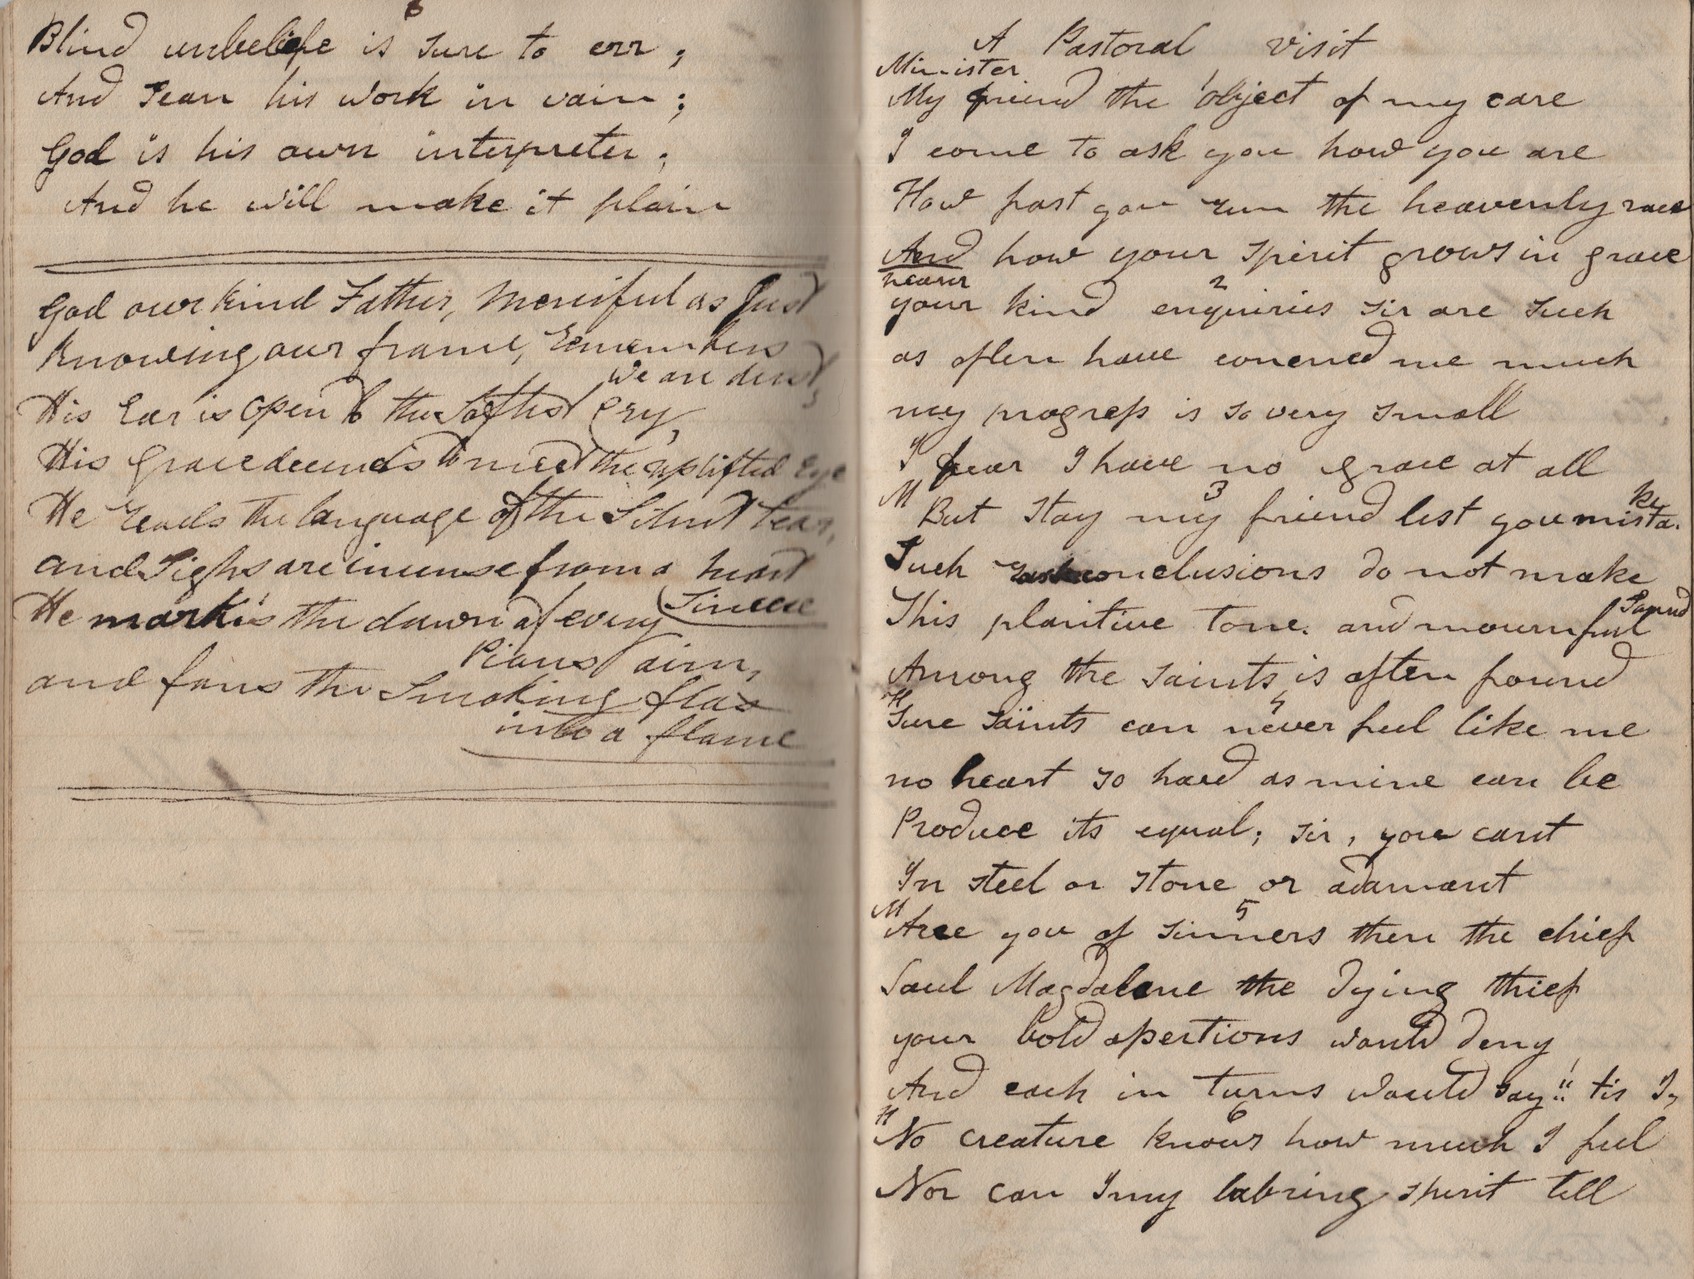 6
Blind unbeliefe is sure to err ;
And scan his work in vain ;
God is his own interpreter ;
And he will make it plain
God our kind Father, Merciful as Just
Knowing our frame, remembers
we are dust,
His Ear is open to the softest Cry,
His Grace decends to meet the uplifted Eye
He reads the language of the Silent tear,
and Sighs are incense from a heart
Sincere
He marks the dawn of every
Pious aim,
and fans the Smoking flax
into a flame
A Pastoral visit
Minister 1
My friend the object of my care
I come to ask you how you are
How fast you run the heavenly race
And how your spirit grows in grace
hearer 2
your kind enquiries sir are such
as often have conerned me much
my progress is so very small
I fear I have no grace at all
M 3
But stay my friend lest you mistake
Such rash conclusions do not make
This plantive tone. and mournful sound
Among the saints is often found
H 4
Sure saints can never feel like me
no heart so hard as mine can be
Produce its equal; sir, you cant
In steel or stone or adamant
M 5
Are you of sinners then the chief
Saul Magdalene the dying thief
your bold assertions would deny
And each in turns would say!! tis I,
H 6
No creature knows how much I feel
Nor can I my labring spirit tell